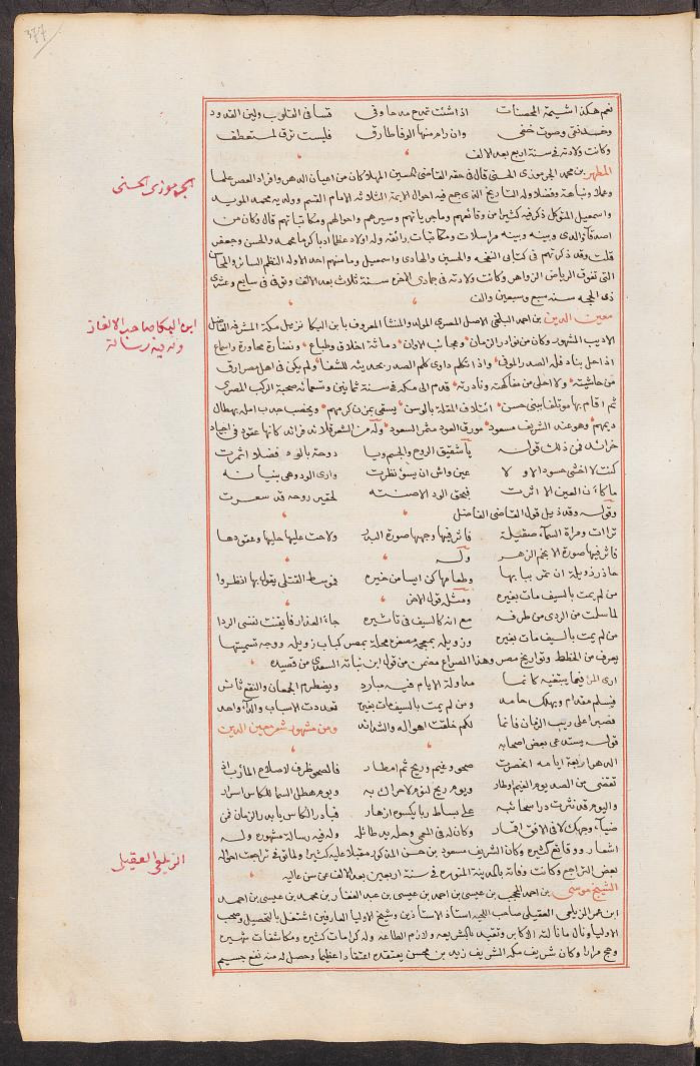 ٣٧٧
نعم هكذا شيمة المحصنات اذا شئت تمدح من قسا في القلوب ولين القدود
وخد نقي وصوت خفي وان رام منها الوفا طارق فليست ترق لمستعطف
وكانت ولادته في سنة اربع بعد الالف
الجرموزي الحسني
المطهر بن محمد الجرموزي الحسني قال في حقه القاضي الحسين المهلا كان من اعيان الدهر وافراد العصر علما
وعملا ونباهة وفضلا وله التاريخ الذي جمع فيه احوال الايمة الثلاثه الامام القسم وولديه محمد المويد
واسمعيل المتوكل ذكر فيه كثيرا من وقائعهم وماجرياتهم وسيرهم واحوالهم ومكاتباتهم قال وكان من
اصدقآء الوالدي وبينه وبينه مراسلات ومكاتبات رائقه وله اولاد عظما ادبا كرما محمد والحسن وجعفر
قلت وقد ذكرتهم في كتابي النفحه والحسين والهادي واسمعيل وما منهم احد الا وله النظم السائر
التي تفوق الرياض الزواهر وكانت ولادته في جمادى الاخرة سنة ثلاث بعد الالف وتوفي في سابع وعشري
ذي الحجه سنه سبع وسبعين والف
ابن البكا صاحب الالغاز
وله فيه رسالة
معين الدين بن احمد البلخي الاصل المصري المولد والمنشا المعروف بابن البكا نزيل مكة المشرفه الفاضل
الاديب المشهور وكان من نوادر الزمان وعجائب الاوان دماثة اخلاق وطباع ونضارة محاورة واسماع
اذا حل بناد فله الصدر الموفى واذا تكلم داوى كلم الصدر بحديثه للشفا ولم يكن في اهل مصر ارق
من حاشيته ولا احلى من مفاكهته ونادرته قدم الى مكة في سنة ثمانين وتسعمائه صحبة الركب المصري
ثم اقام بها مؤتلفا ببني حسن ائتلاف المقلة بالوسن يستقي من كرمهم ويخصب جدب امله بهطال
ديمهم وهو عند الشريف مسعود مورق العود مثمر السعود وله من الشعر قلائد فرائد كانها عقود في اجياد
خرائد فمن ذلك قوله يا شقيق الروح والجسم ويا دوحة بالود فضلا اثمرت
كنت لا اخشى حسودا لا ولا عين واش ان بسوء نظرت وارى الود وهي بنيانه
ما كان العين الا اثرت فبحق الود الا صنته لحقير روحه قد سعرت
وقوله وقد ذيل قول القاضي الفاضل
تراات ومراة السمآء صقيلة فاثر فيها وجهها صورة البدر ولاحت عليها حليها وعقودها
فاثر فيها صورة الانجم الزهر وله
حاذر زويلة ان تمر ببابها وطعامها كن ايسا من خيره فوسط القتلى يقول بها انظروا
من لم يمت بالسيف مات بغيره ومثله قول الاخر
لما سلمت من الردى من طرفه مع انه كالسيف في تاثيره جاء العذار فايقنت نفسي الردا
من لم يمت بالسيف مات بغيره وزويله محلة بمصر كباب زويله ووجه تسميتها
يعرف من الخطط وتواريخ مصر وهذا المصراع مضمن من قول ابن نباته السعدي من قصيده
ارى المرء فيما يبتغيه كانما مداولة الايام فيه مبارد ويضطرم الجمعان والنقع ثائر
فيسلم مقدام ويهلك خامد ومن لم يمت بالسيف مات بغيره تعددت الاسباب والدآء واحد
فصبرا على ريب الزمان فانما لكم خلقت اهواله والشدائد ومن مشهور شعر معين الدين
قوله يستدعي بعض اصحابه
الدهر اربعة ايامه انحصرت صحو وغيم وريح ثم امطار فالصحو ظرف لاصلاح اذ
تقتضي من الصيد يوم الغيم اوطار ويوم ريح لنوم لا حراك به ويوم هطل السما للكاس اسرار
واليوم قد نثرت درا سحائبه على بساط ربا يكسوه ازهار فبادر الكاس يا بدر الزمان فمن
ضيآء وجهك لا في الافق اقمار وكان له في المعمى وحله يد طائله وله فيه رسالة مشهوره وله
اشعار ووقايع كثيره وكان الشريف مسعود بن حسن المذكور مقبلا عليه كثيرا ولم اقف في تراجمه احواله
بعض التراجم وكانت وفاته بالمدينة المنوره في سنة اربعين بعد الالف عن سن عاليه
الزيلعي العقيلي
الشيخ موسى بن احمد المحجب بن عيسى بن احمد بن عيسى بن عبد الغفار بن محمد بن عيسى بن احمد
ابن عمر الزيلعي العقيلي صاحب اللحية استاذ الاستاذين وشيخ الاوليا العارفين اشتغل بالتحصيل وصحب
الاوليا ونال ما نالته الاكابر وتقيد بالشريعه ولازم الطاعه وله كرامات كثيره ومكاشفات شهيره
وحج مرارا وكان شريف مكه الشريف زيد بن محسن يعتقده اعتقادا عظيما وحصل له منه نفع جسيم